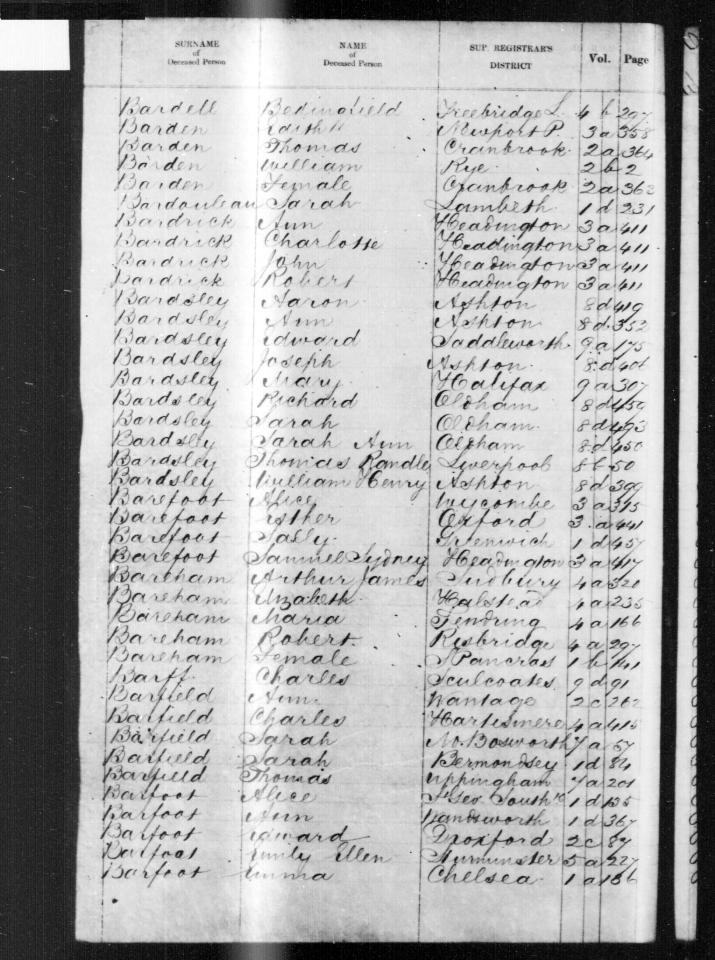 SURNAME of Deceased Person NAME of Deceased Person SUP. REGISTRAR'S DISTRICT Vol. Page
Bardell Bedingfield Freebridge L. 4 b 297
Barden Edith Newport P. 3 a 358
Barden Thomas Cranbrook 2 a 364
Barden William Rye 2 b 2
Barden Female Cranbrook 2 a 362
Bardouleau Sarah Lambeth 1 d 231
Bardrick Ann Headington 3 a 411
Bardrick Charlotte Headington 3 a 411
Bardrick John Headington 3 a 411
Bardrick Robert Headington 3 a 411
Bardsley Aaron Ashton 8 d 419
Bardsley Ann Ashton 8 d 352
Bardsley Edward Saddleworth 9 a 175
Bardsley Joseph Ashton 8 d 406
Bardsley Mary Halifax 9 a 307
Bardsley Richard Oldham 8 d 459
Bardsley Sarah Oldham 8 d 493
Bardsley Sarah Ann Oldham 8 d 450
Bardsley Thomas Randle Liverpool 8 b 50
Bardsley William Henry Ashton 8 d 399
Barefoot Alice Wycombe 3 a 315
Barefoot Esther Oxford 3 a 441
Barefoot Sally Greenwich 1 d 457
Barefoot Samuel Sydney Headington 3 a 417
Bareham Arthur James Sudbury 4 a 320
Bareham Elizabeth Halstead 4 a 235
Bareham Maria Tendring 4 a 166
Bareham Robert Risbridge 4 a 297
Bareham Female S Pancras 1 b 141
Barff Charles Sculcoates 9 d 91
Barfield Ann Wantage 2 c 262
Barfield Charles Hartismere 4 a 415
Barfield Sarah M. Bosworth 7 a 57
Barfield Sarah Bermondsey 1 d 84
Barfield Thomas Uppingham 7 a 201
Barfoot Alice St Geo. Southk 1 d 135
Barfoot Ann Wandsworth 1 d 367
Barfoot Edward Droxford 2 c 87
Barfoot Emily Ellen Sturminster 5 a 227
Barfoot Emma Chelsea 1 a 186